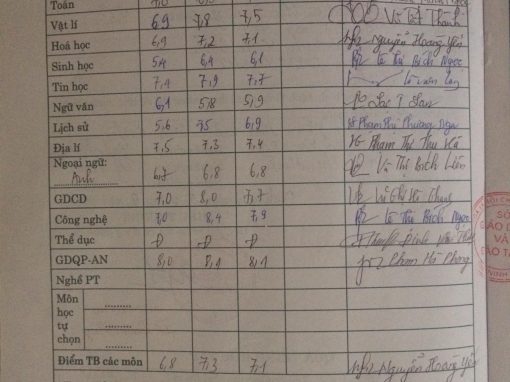 Toán
Vật lí 6,9 7,8 7,5 Vũ Tất Thành
Hoá học 6,9 7,2 7,1 Như Nguyễn Hoàng Yến
Sinh học 5,4 6,4 6,1 Vũ Thị Bích Ngọc
Tin học 7,4 7,9 7,7
Ngữ văn 6,1 5,8 5,9
Lịch sử 5,6 7,5 6,9 Phạm Thị Phương Nga
Địa lí 7,5 7,3 7,4 Phạm Thị Thu Hà
Ngoại ngữ:
Anh 6,7 6,8 6,8 Vũ Thị Bích Liên
GDCD 7,0 8,0 7,7
Công nghệ 7,0 8,4 7,9 Vũ Thị Bích Ngọc
Thể dục Đ Đ Đ
GDQP-AN 8,0 8,1 8,1 Phạm Hà Phong
Nghề PT
Môn
học
tự
chọn
Điểm TB các môn 6,8 7,3 7,1 Như Nguyễn Hoàng Yến
SỞ
VÀ